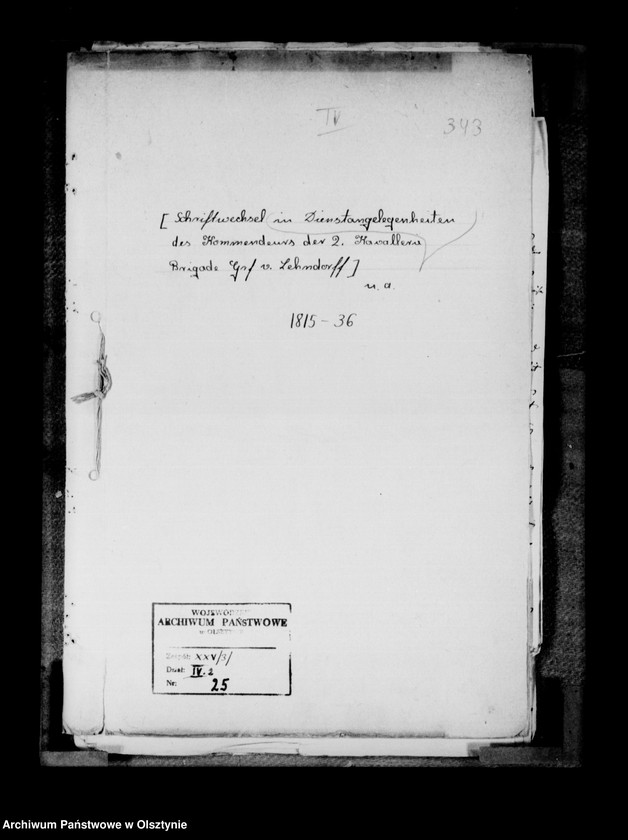 IV
343
[ Schriftwechsel in Dienstangelegenheiten
des Kommendeurs der 2. Kavallera
Brigade Grf v. Lehndorff ]
u. a.
1815 - 36
ARCHIWUM PAŃSTWOWE
w OLSZTYNIE
Zespół: XXV/3/
Dział: IV. 2
Nr: 25
Archiwum Państwowe w Olsztynie